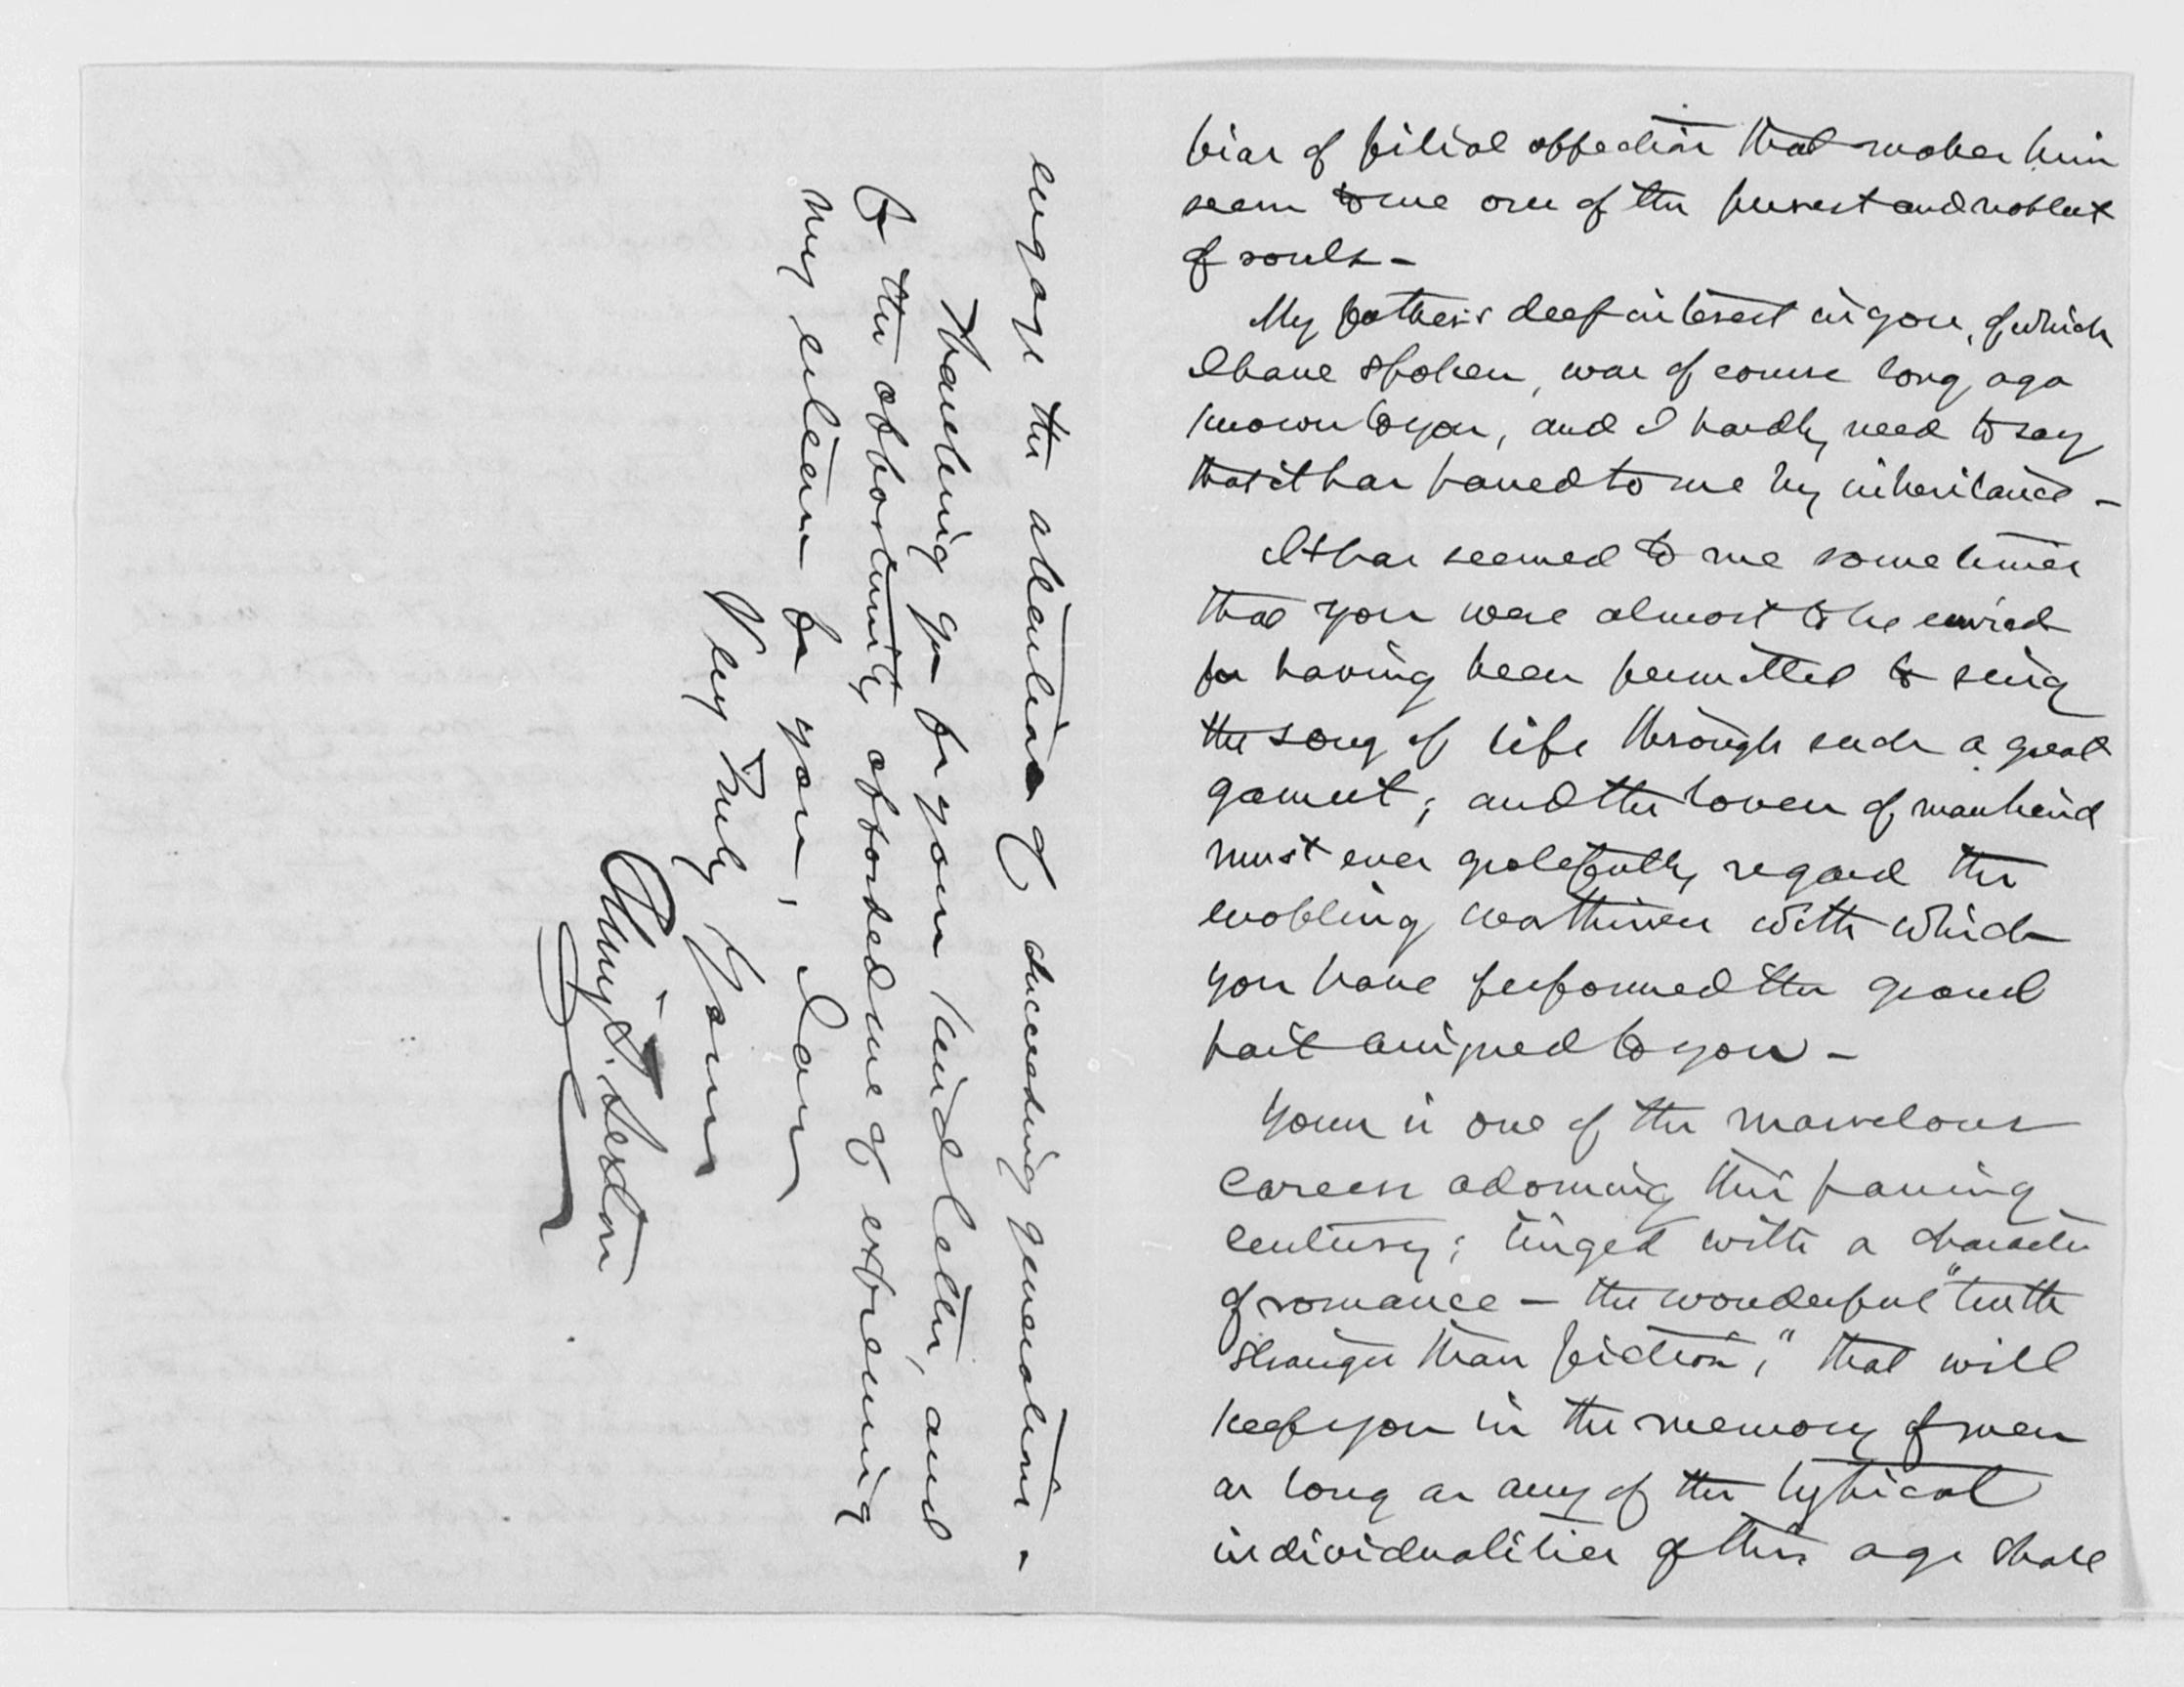 bias of filial affection that makes him
seem to me one of the purest and noblest
of souls –
My father's deep interest in you, of which
I have spoken, was of course long ago
known to you, and I hardly need to say
that it has passed to me by inheritance –
It has seemed to me sometimes
that you were almost to be envied
for having been permitted to sing
the song of life through such a great
gamut; and the lovers of mankind
must ever gratefully regard the
enobling worthiness with which
you have performed the grand
part assigned to you –
Yours is one of the marvelous
careers adorning this passing
century; tinged with a character
of romance – the wonderful "truth
stranger than fiction," that will
keep you in the memory of men
as long as any of the typical
individualities of this age shall
engage the attention of succeeding generations –
Thanking you for your kind letter, and
for the opportunity afforded me of expressing
my esteem for you, I am
Very Truly Yours
Pliny T. Sexton